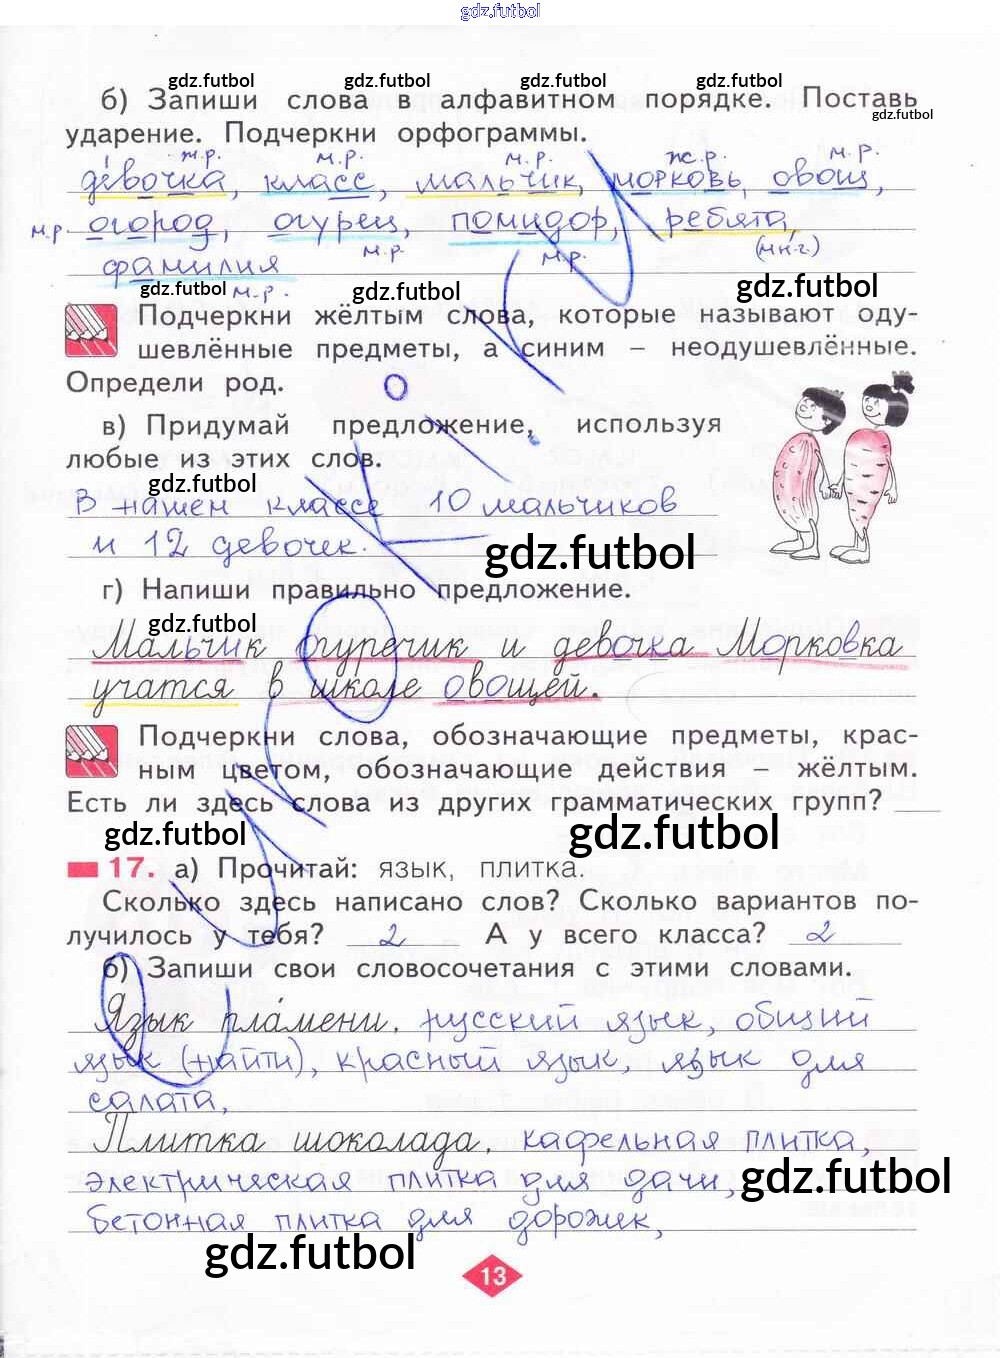 gdz.futbol
gdz.futbol gdz.futbol gdz.futbol gdz.futbol
б) Запиши слова в алфавитном порядке. Поставь
gdz.futbol
ударение. Подчеркни орфограммы.
ж.р. м.р. м.р. ж.р. м.р.
девочка, класс, мальчик, морковь, овощ,
м.р. огород, огурец, помидор, ребята,
м.р. м.р. (мн.ч.)
фамилия
gdz.futbol м.р. gdz.futbol gdz.futbol
Подчеркни жёлтым слова, которые называют оду-
шевлённые предметы, а синим – неодушевлённые.
Определи род.
в) Придумай предложение, используя
любые из этих слов.
gdz.futbol
В нашем классе 10 мальчиков
и 12 девочек.
gdz.futbol
г) Напиши правильно предложение.
gdz.futbol
Мальчик огуречик и девочка Морковка
учатся в школе овощей.
Подчеркни слова, обозначающие предметы, крас-
ным цветом, обозначающие действия – жёлтым.
Есть ли здесь слова из других грамматических групп?
gdz.futbol gdz.futbol
17. а) Прочитай: язык, плитка.
Сколько здесь написано слов? Сколько вариантов по-
лучилось у тебя? 2 А у всего класса? 2
б) Запиши свои словосочетания с этими словами.
Язык пла́мени, русский язык, общий
язык (найти), красный язык, язык для
салата,
Плитка шоколада, кафельная плитка,
электрическая плитка для дачи,
gdz.futbol
бетонная плитка для дорожек,
gdz.futbol
13